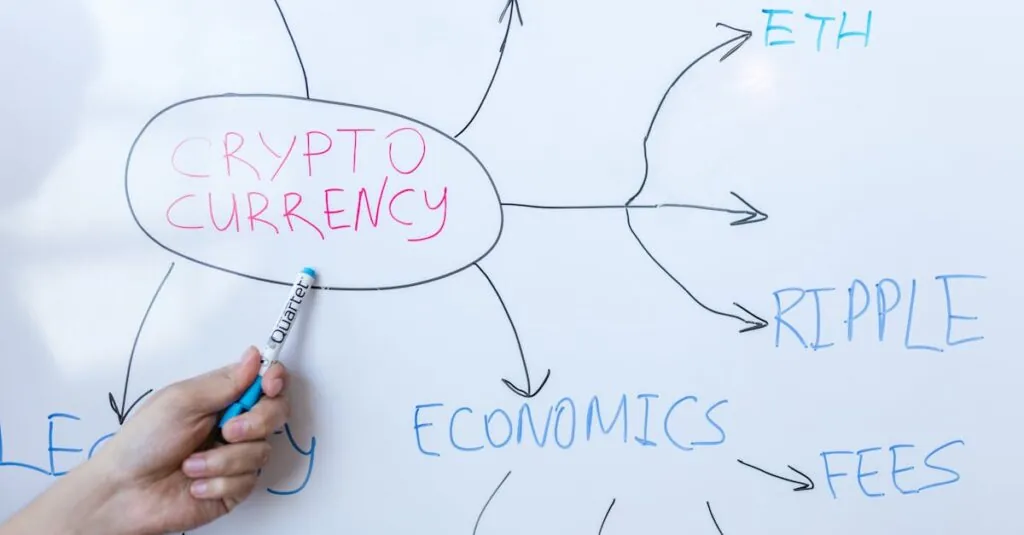 ETH
CRYPTO
CURRENCY
Quartet
RIPPLE
ECONOMICS
FEES